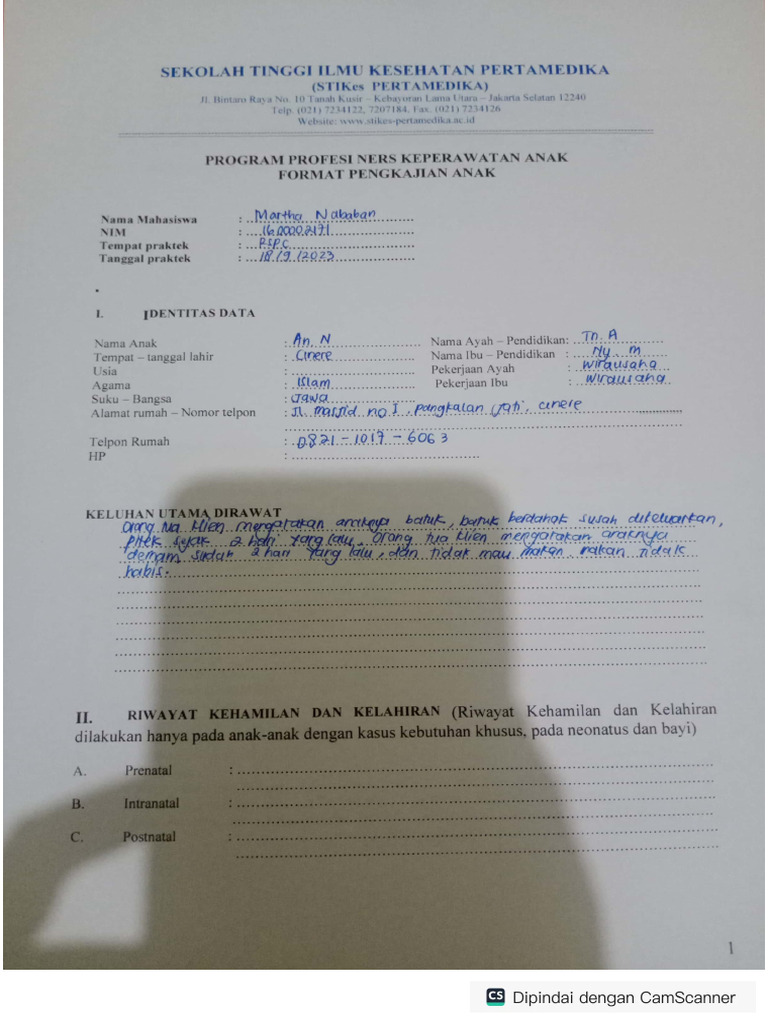 SEKOLAH TINGGI ILMU KESEHATAN PERTAMEDIKA
(STIKes PERTAMEDIKA)
Jl. Bintaro Raya No. 10 Tanah Kusir – Kebayoran Lama Utara – Jakarta Selatan 12240
Telp. (021) 7234122, 7207184, Fax. (021) 7234126
Website: www.stikes-pertamedika.ac.id
PROGRAM PROFESI NERS KEPERAWATAN ANAK
FORMAT PENGKAJIAN ANAK
Nama Mahasiswa : Martha Nababan
NIM :
Tempat praktek : RSPC
Tanggal praktek : 18/9/2023
I. IDENTITAS DATA
Nama Anak : An. N Nama Ayah – Pendidikan: Tn. A
Tempat – tanggal lahir : Cinere Nama Ibu – Pendidikan : Ny. M
Usia : Pekerjaan Ayah : Wirausaha
Agama : Islam Pekerjaan Ibu : Wirausaha
Suku – Bangsa : Jawa
Alamat rumah – Nomor telpon : Jl. Masjid no 1. pangkalan Jati, cinere
Telpon Rumah : 0821-1017-6063
HP :
KELUHAN UTAMA DIRAWAT
Orang tua klien mengatakan anaknya batuk, batuk berdahak susah dikeluarkan,
Pilek sejak 2 hari yang lalu. Orang tua klien mengatakan anaknya
demam sudah 2 hari yang lalu, dan tidak mau makan, makan tidak
habis.
II. RIWAYAT KEHAMILAN DAN KELAHIRAN (Riwayat Kehamilan dan Kelahiran
dilakukan hanya pada anak-anak dengan kasus kebutuhan khusus, pada neonatus dan bayi)
A. Prenatal :
B. Intranatal :
C. Postnatal :
1
CS Dipindai dengan CamScanner